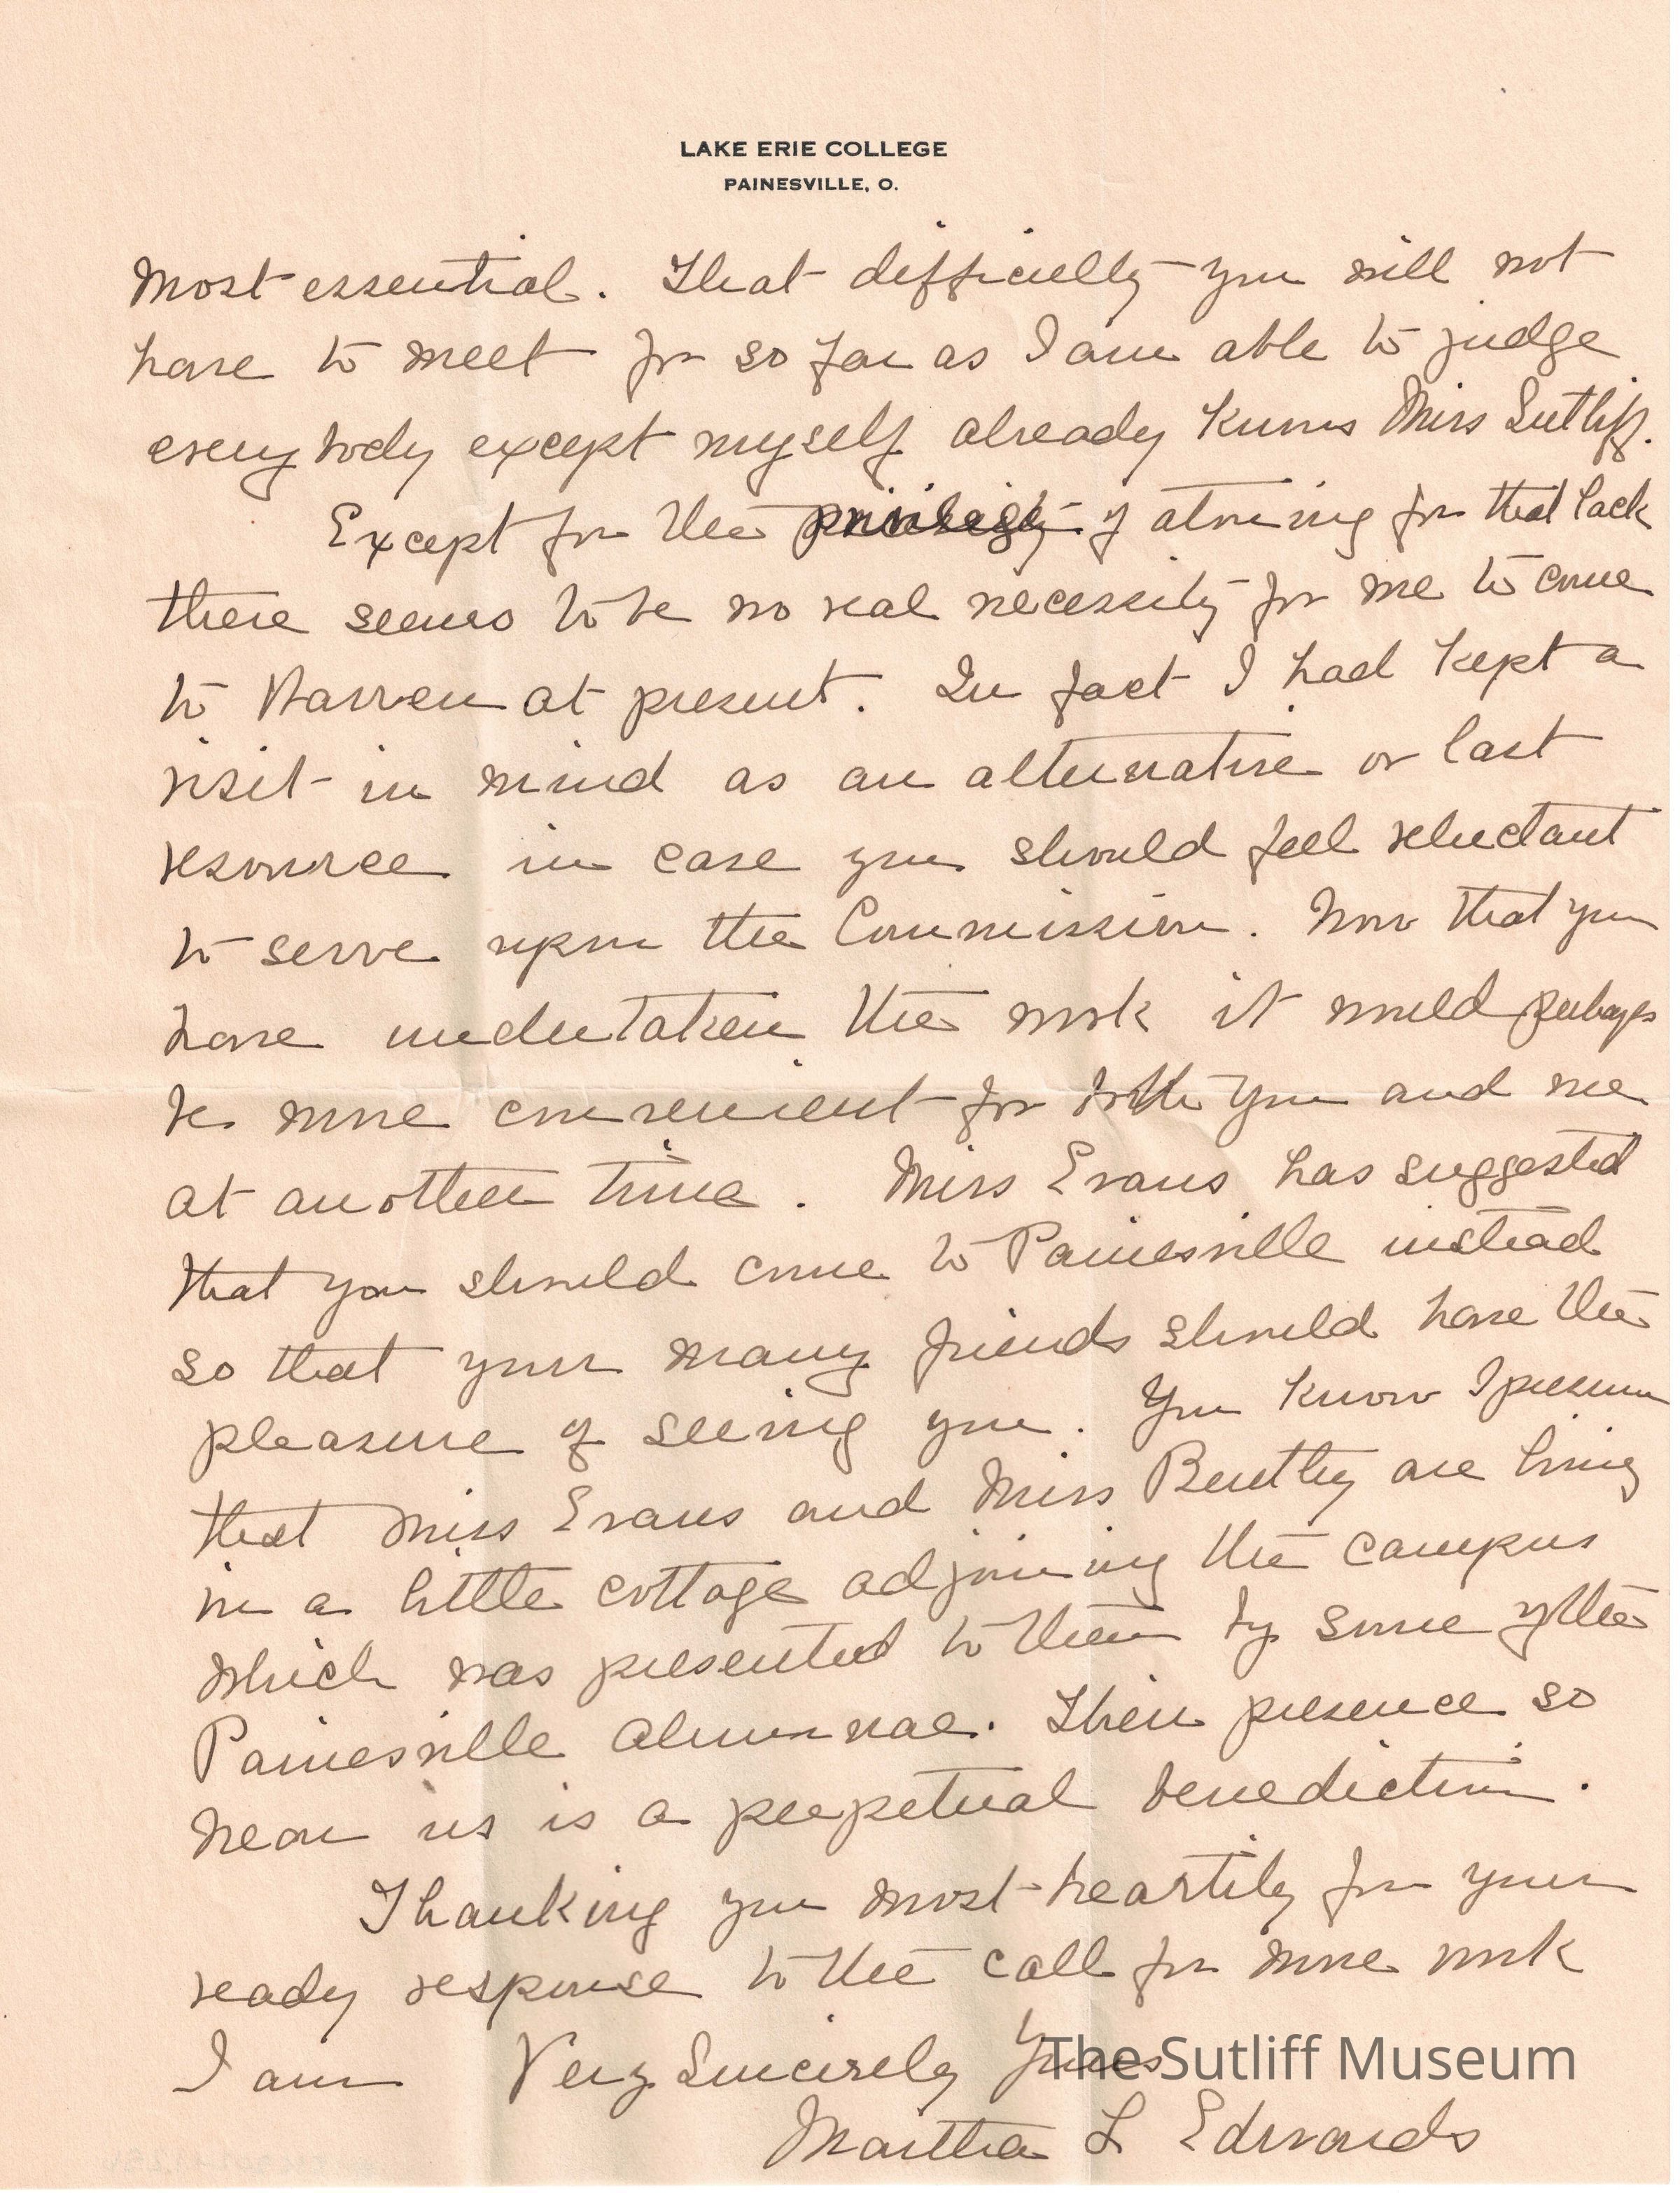 LAKE ERIE COLLEGE
PAINESVILLE, O.
most essential. That difficulty you will not
have to meet for so far as I am able to judge
everybody except myself already knows Miss Sutliff.
Except for the privilege of atoning for that lack
there seems to be no real necessity for me to come
to Warren at present. In fact I had kept a
visit in mind as an alternative or last
resource in case you should feel reluctant
to serve upon the Commission. Now that you
have undertaken the work it would perhaps
be more convenient for both you and me
at another time. Miss Evans has suggested
that you should come to Painesville instead
so that your many friends should have the
pleasure of seeing you. You know I presume
that Miss Evans and Miss Bentley are living
in a little cottage adjoining the campus
which was presented to them by some of the
Painesville alumnae. Their presence so
near us is a perpetual benediction.
Thanking you most heartily for your
ready response to the call for more work
I am Very Sincerely Yours
The Sutliff Museum
Martha L Edwards